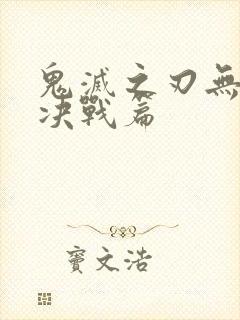 鬼滅之刃無
決戰篇
竇文浩